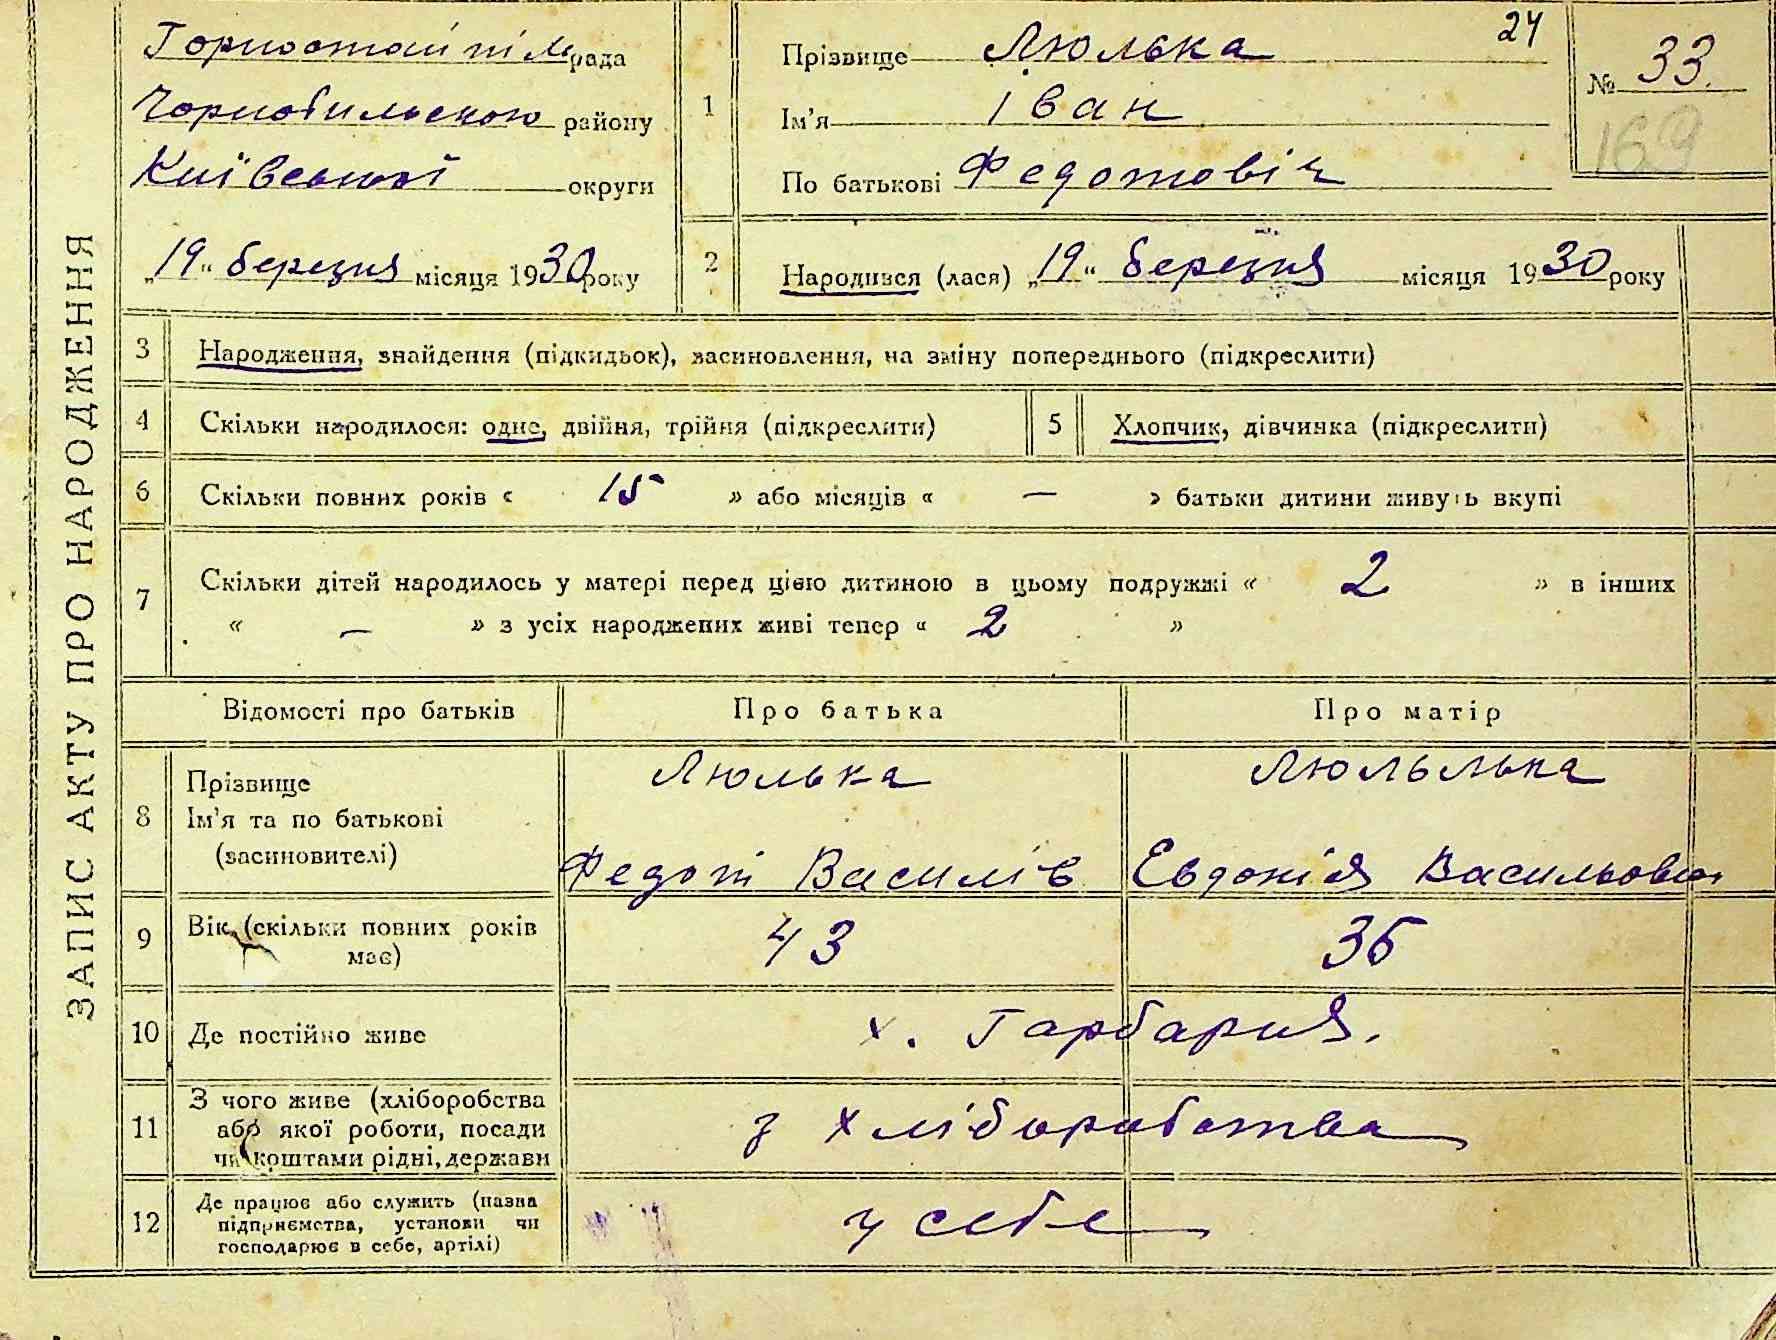 ЗАПИС АКТУ ПРО НАРОДЖЕННЯ
Горностайпільрада
Чорнобильською району
Київської округи
„19“ березня місяця 1930 року
24
1 Прізвище Люлька
Ім'я Іван
По батькові Федотовіч
№ 33.
169
2 Народився (лася) „19“ березня місяця 1930 року
3 Народження, знайдення (підкидьок), засиновлення, на зміну попереднього (підкреслити)
4 Скільки народилося: одне, двійня, трійня (підкреслити) 5 Хлопчик, дівчинка (підкреслити)
6 Скільки повних років « 15 » або місяців « — » батьки дитини живуть вкупі
7 Скільки дітей народилось у матері перед цією дитиною в цьому подружжі « 2 » в інших
« — » з усіх народжених живі тепер « 2 »
Відомості про батьків Про батька Про матір
8 Прізвище
Ім'я та по батькові
(засиновителі)
Люлька
Федот Василів
Люлълька
Евдокія Васильовна
9 Вік (скільки повних років
має)
43 36
10 Де постійно живе х. Гарбария.
11 З чого живе (хліборобства
або якої роботи, посади
чи коштами рідні, держави
з хліборобства
12 Де працює або служить (назва
підприємства, установи чи
господарює в себе, артілі)
у себе